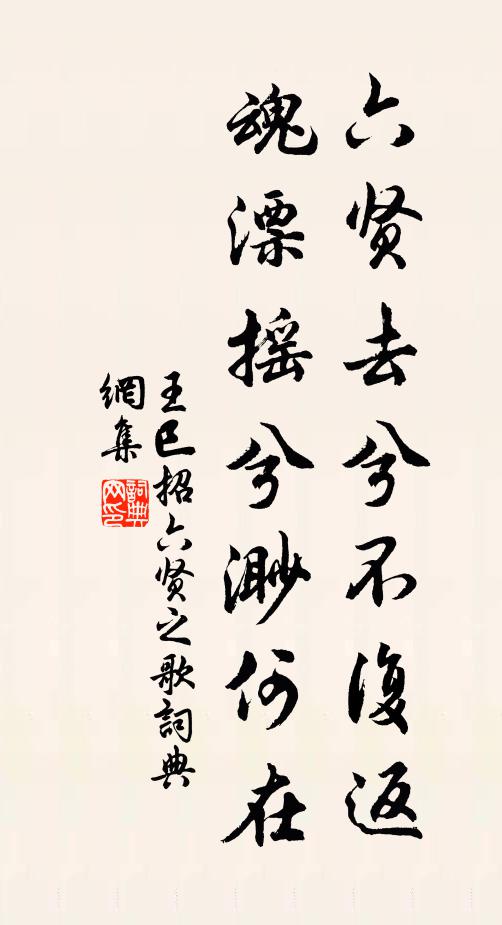 六贤去兮不復返
魂漂摇兮渺何在
王巳招六贤之歌詞典
網集
詞典
网印